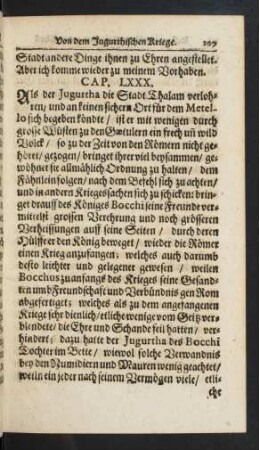 Von dem Jugurthischen Kriege. 209
Stadt andere Dinge ihnen zu Ehren angestellet.
Aber ich komme wieder zu meinem Vorhaben.
CAP. LXXX.
Als der Jugurtha die Stadt Thalam verloh-
ren/ und an keinen sichern Ort für dem Metel-
lo sich begeben köndte/ ist er mit wenigen durch
grosse Wüsten zu den Gætulern ein frech uñ wild
Volck/ so zu der Zeit von den Römern nicht ge-
höret/ gezogen/ bringet ihrer viel beysammen/ ge-
wöhnet sie allmählich Ordnung zu halten/ dem
Fähnlein folgen/ nach dem Befehl sich zu achten/
und in andern Kriegessachen sich zu schicken: brin-
get drauff des Königes Bocchi seine Freunde ver-
mittelst grossen Verehrung und noch grösseren
Verheissungen auff seine Seiten/ durch deren
Hülffe er den König beweget/ wieder die Römer
einen Krieg anzufangen: welches auch darumb
desto leichter und gelegener gewesen/ weilen
Bocchus zu anfangs des Krieges seine Gesand-
ten umb Freundschaft und Verbündnis gen Rom
abgefertiget; welches als zu dem angefangenen
Kriege sehr dienlich/ etliche wenige vom Geitz ver-
blendete/ die Ehre und Schande feil hatten/ ver-
hindert; dazu hatte der Jugurtha des Bocchi
Tochter im Bette/ wiewol solche Verwandnis
bey den Numidiern und Mauren wenig geachtet/
weiln ein jeder nach seinem Vermögen viele/ etli-
che